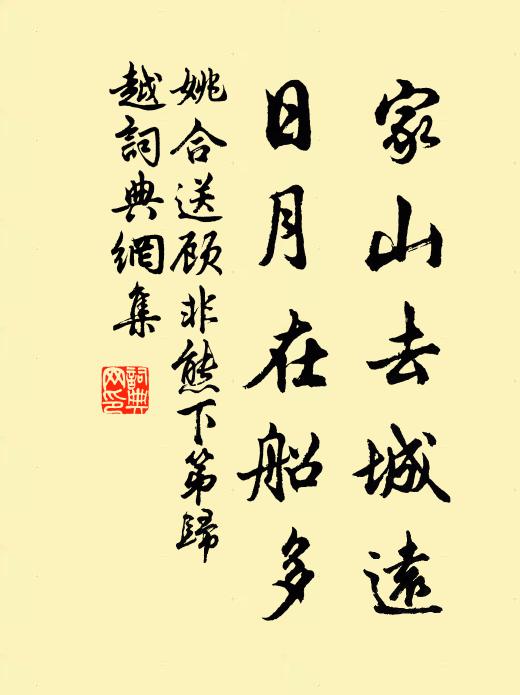 家山去城遠
日月在船多
姚合送顾非熊下第歸
越詞典網集
詞典网印